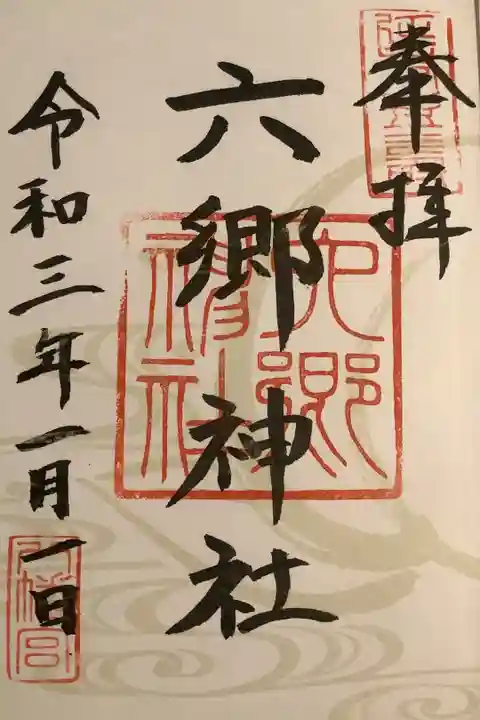 奉拝
六郷神社
令和三年一月一日
六郷神社
八幡宮